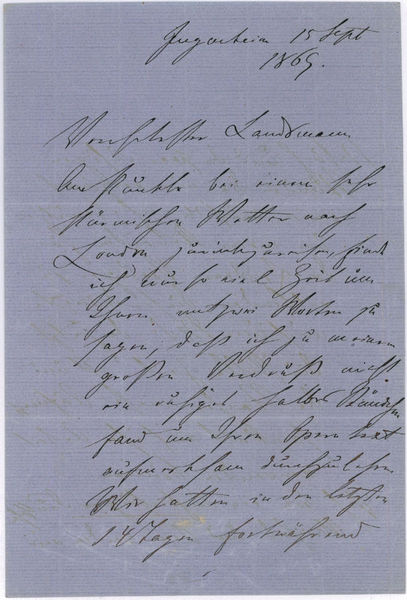 Jugenheim 15 Sept
1869.
Verehrtester Landsmann
Am bei einem sehr
stürmischen Wetter nach
London zurückzureisen, finde
ich nur so viel Zeit um
Ihnen mit zwei Worten zu
sagen, daß ich zu meinem
großen Verdruß nicht
ein ruhiges halbes Stündchen
fand um Ihren Operntext
aufmerksam durchzulesen.
Wir hatten in den letzten
14 Tagen fortwährend